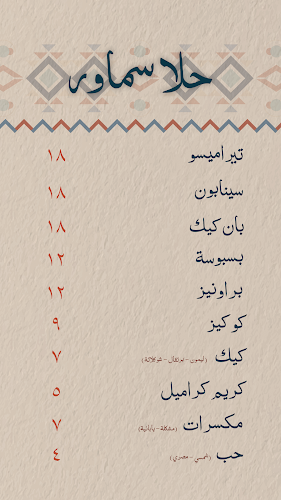 حلا سماور
تيراميسو ١٨
سينابون ١٨
بان كيك ١٨
بسبوسة ١٢
براونيز ١٢
كوكيز ٩
كيك (ليمون - برتقال - شوكلاتة) ٧
كريم كراميل ٥
مكسرات (مشكلة - يابانية) ٧
حب (شمسي - مصري) ٤